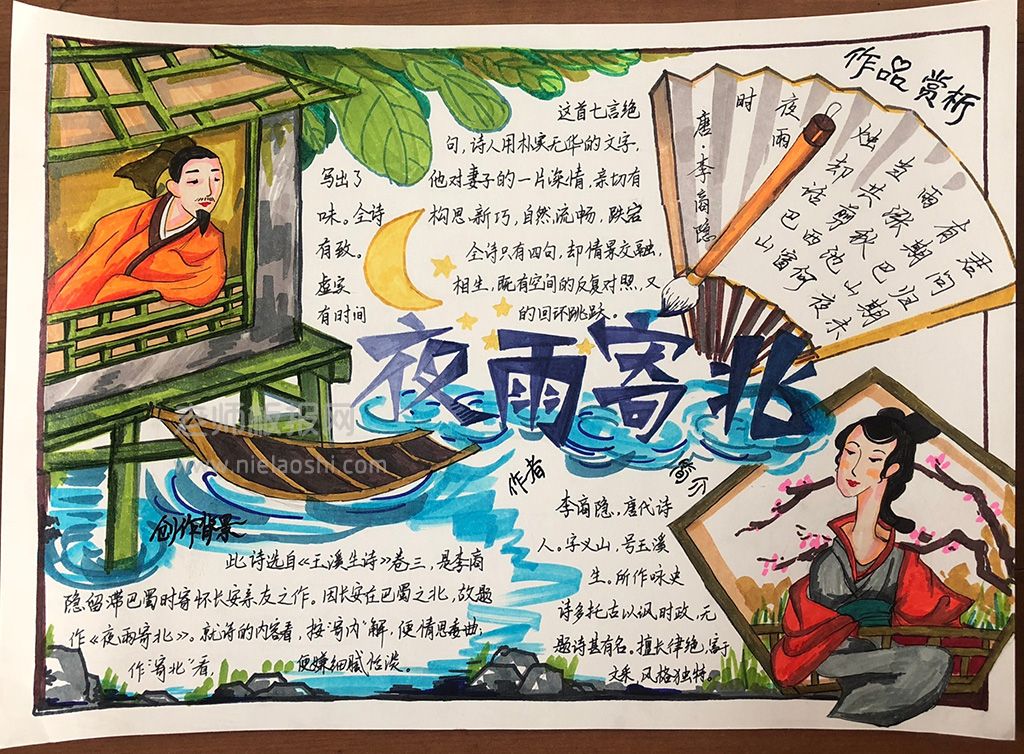 作品赏析
君问归期未
有期巴山夜
雨涨秋池何
当共剪西窗
烛却话巴山
夜雨
时
唐·李商隐
这首七言绝
句,诗人用朴实无华的文字,
写出了 他对妻子的一片深情,亲切有
味。全诗 构思新巧,自然流畅,跌宕
有致。 全诗只有四句,却情景交融,
虚实 相生,既有空间的反复对照,又
有时间 的回环跳跃。
夜雨寄北
老师板报网
www.nielaoshi.com
作者 简介
李商隐,唐代诗
人。字义山,号玉溪
生。所作咏史
诗多托古以讽时政,无
题诗甚有名。擅长律绝,富于
文采,风格独特。
创作背景
此诗选自《玉溪生诗》卷三,是李商
隐留滞巴蜀时寄怀长安亲友之作。因长安在巴蜀之北,故题
作《夜雨寄北》。就诗的内容看,按"寄内"解,便情思委曲;
作"寄北"看, 便嫌细腻恬淡。